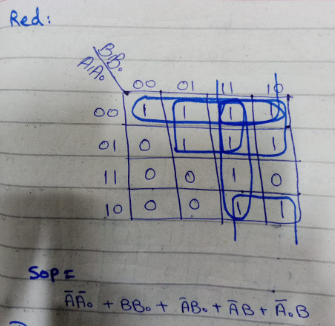 Red:
B₁B₀
A₁A₀
00 01 11 10
00 1 1 1 1
01 0 1 1 1
11 0 0 1 0
10 0 0 1 1
SOP =
ĀĀ₀ + BB₀ + ĀB₀ + ĀB + Ā₀B